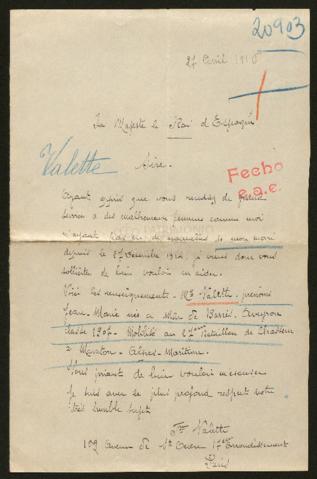 20903
27 Avril 1915
Sa Majesté le Roi d'Espagne
Valette
Sire.
Fecho
e.a.c.
Ayant appris que vous rendez de grand
service a des malheureuse femmes comme moi
n'ayant de nouvelles de mon mari
depuis le 27 décembre 1914, je viens donc vous
solliciter de bien vouloir m'aider.
Voici les renseignements. Mr Valette, prénoms
Jean-Marie né a de Barrès. Aveyron
classe 1907. Mobilisé au 27ème Bataillon de Chasseur
à Menton - Alpes-Maritime.
Vous priant de bien vouloir m'excuser
Je suis avec le plus profond respect votre
très humble sujet
Valette
109 Avenue de St Ouen 17e Arrondissement
Paris